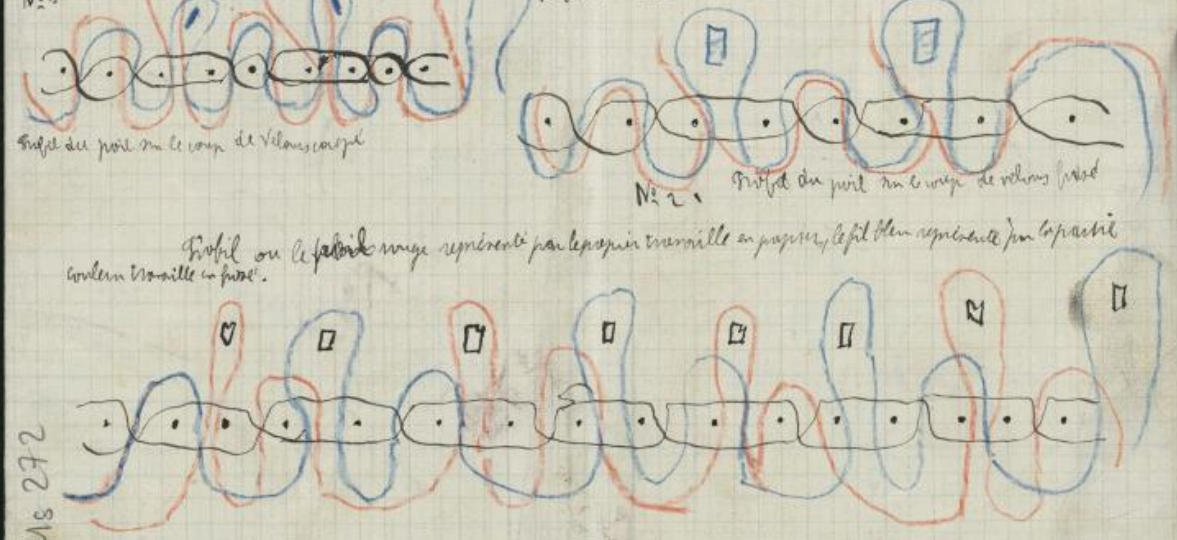 Profil du poil sur le coup de Velours coupé
Profil du poil sur le coup de velours frisé
Nº 2.
Profil ou le rouge représenté par le papier travaille en le fil bleu représenté par la partie
couleur travaille en frisé.
Ms 272